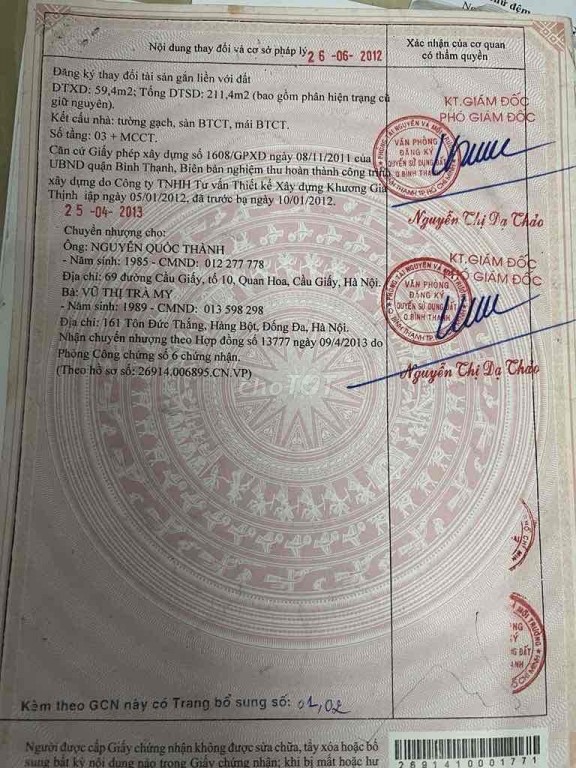 Nội dung thay đổi và cơ sở pháp lý
26-06-2012
Xác nhận của cơ quan
có thẩm quyền
Đăng ký thay đổi tài sản gắn liền với đất
DTXD: 59,4m2; Tổng DTSD: 211,4m2 (bao gồm phân hiện trạng cũ
giữ nguyên).
Kết cấu nhà: tường gạch, sàn BTCT, mái BTCT.
Số tầng: 03 + MCCT.
Căn cứ Giấy phép xây dựng số 1608/GPXD ngày 08/11/2011 của
UBND quận Bình Thạnh, Biên bản nghiệm thu hoàn thành công trình
xây dựng do Công ty TNHH Tư vấn Thiết kế Xây dựng Khương Gia
Thịnh lập ngày 05/01/2012, đã trước bạ ngày 10/01/2012.
KT.GIÁM ĐỐC
PHÓ GIÁM ĐỐC
VĂN PHÒNG
ĐĂNG KÝ
QUYỀN SỬ DỤNG ĐẤT
Q.BÌNH THẠNH
Nguyễn Thị Dạ Thảo
25-04-2013
Chuyển nhượng cho:
Ông: NGUYỄN QUỐC THÀNH
- Năm sinh: 1985 - CMND: 012 277 778
Địa chỉ: 69 đường Cầu Giấy, tổ 10, Quan Hoa, Cầu Giấy, Hà Nội.
Bà: VŨ THỊ TRÀ MY
- Năm sinh: 1989 - CMND: 013 598 298
Địa chỉ: 161 Tôn Đức Thắng, Hàng Bột, Đống Đa, Hà Nội.
Nhận chuyển nhượng theo Hợp đồng số 13777 ngày 09/4/2013 do
Phòng Công chứng số 6 chứng nhận.
(Theo hồ sơ số: 26914.006895.CN.VP)
KT.GIÁM ĐỐC
PHÓ GIÁM ĐỐC
VĂN PHÒNG
ĐĂNG KÝ
QUYỀN SỬ DỤNG ĐẤT
Q.BÌNH THẠNH
Nguyễn Thị Dạ Thảo
Kèm theo GCN này có Trang bổ sung số: 01,02
Người được cấp Giấy chứng nhận không được sửa chữa, tẩy xóa hoặc bổ
sung bất kỳ nội dung nào trong Giấy chứng nhận; khi bị mất hoặc hư
2691410001771